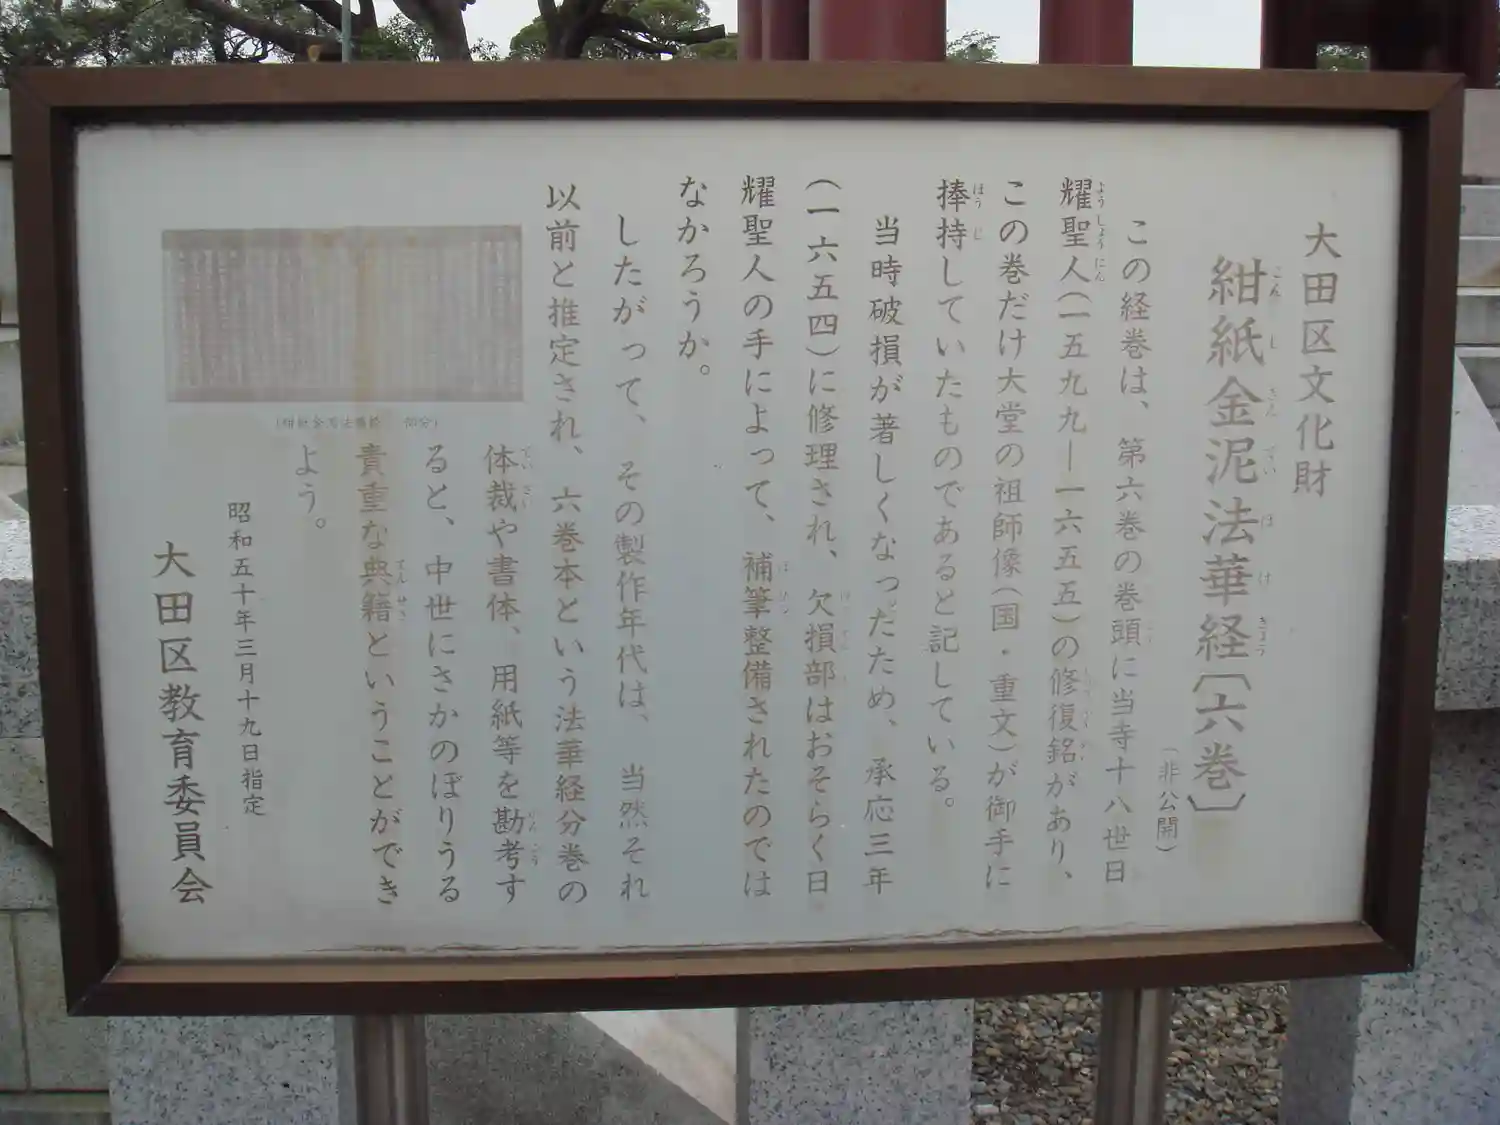 大田区文化財
紺紙金泥法華経〔六巻〕
(非公開)
この経巻は、第六巻の巻頭に当寺十八世日
耀聖人(一五九九―一六五五)の修復銘があり、
この巻だけ大堂の祖師像(国・重文)が御手に
捧持していたものであると記している。
当時破損が著しくなったため、承応三年
(一六五四)に修理され、欠損部はおそらく日
耀聖人の手によって、補筆整備されたのでは
なかろうか。
したがって、その製作年代は、当然それ
以前と推定され、六巻本という法華経分巻の
体裁や書体、用紙等を勘考す
ると、中世にさかのぼりうる
貴重な典籍ということができ
よう。
昭和五十年三月十九日指定
大田区教育委員会